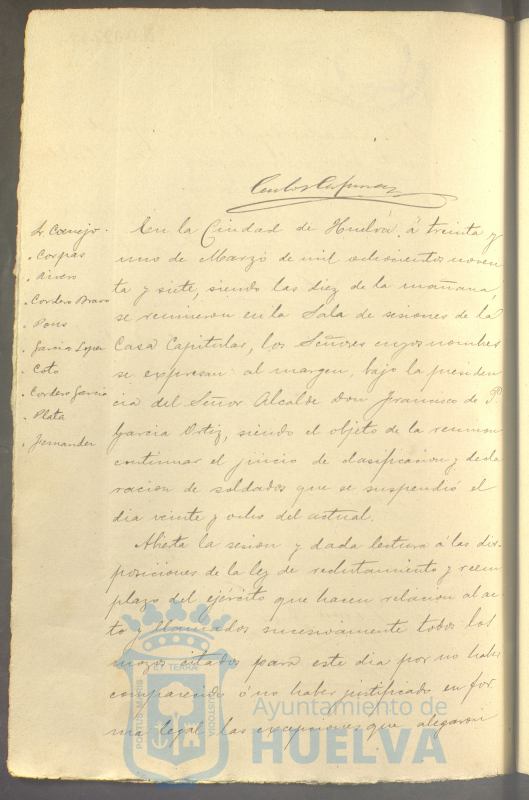 Sr. Conejo.
. Corpas
. Rivero
. Cordero Bravo
. Pons
. Garcia Lopez
. Coto
. Cordero Garcia
. Plata
. Fernandez
En la Ciudad de Huelva, á treinta y
uno de Marzo de mil ochocientos noven
ta y siete, siendo las diez de la mañana,
se reunieron en la Sala de sesiones de la
Casa Capitular, los Señores cuyos nombres
se expresan al margen, bajo la presiden
cia del Señor Alcalde Don Francisco de P.
Garcia Ortiz, siendo el objeto de la reunion
continuar el juicio de clasificacion y decla
racion de soldados que se suspendió el
dia veinte y ocho del actual.
Abierta la sesion y dada lectura á las dis-
posiciones de la ley de reclutamiento y reem
plazo del ejército que hacen relacion al ac
to y llamados sucesivamente todos los
mozos citados para este dia por no haber
comparecido ó no haber justificado en for
ma legal las excepciones que alegaron
PORTUS MARIS ET TERRÆ CUSTODIA
Ayuntamiento de
HUELVA